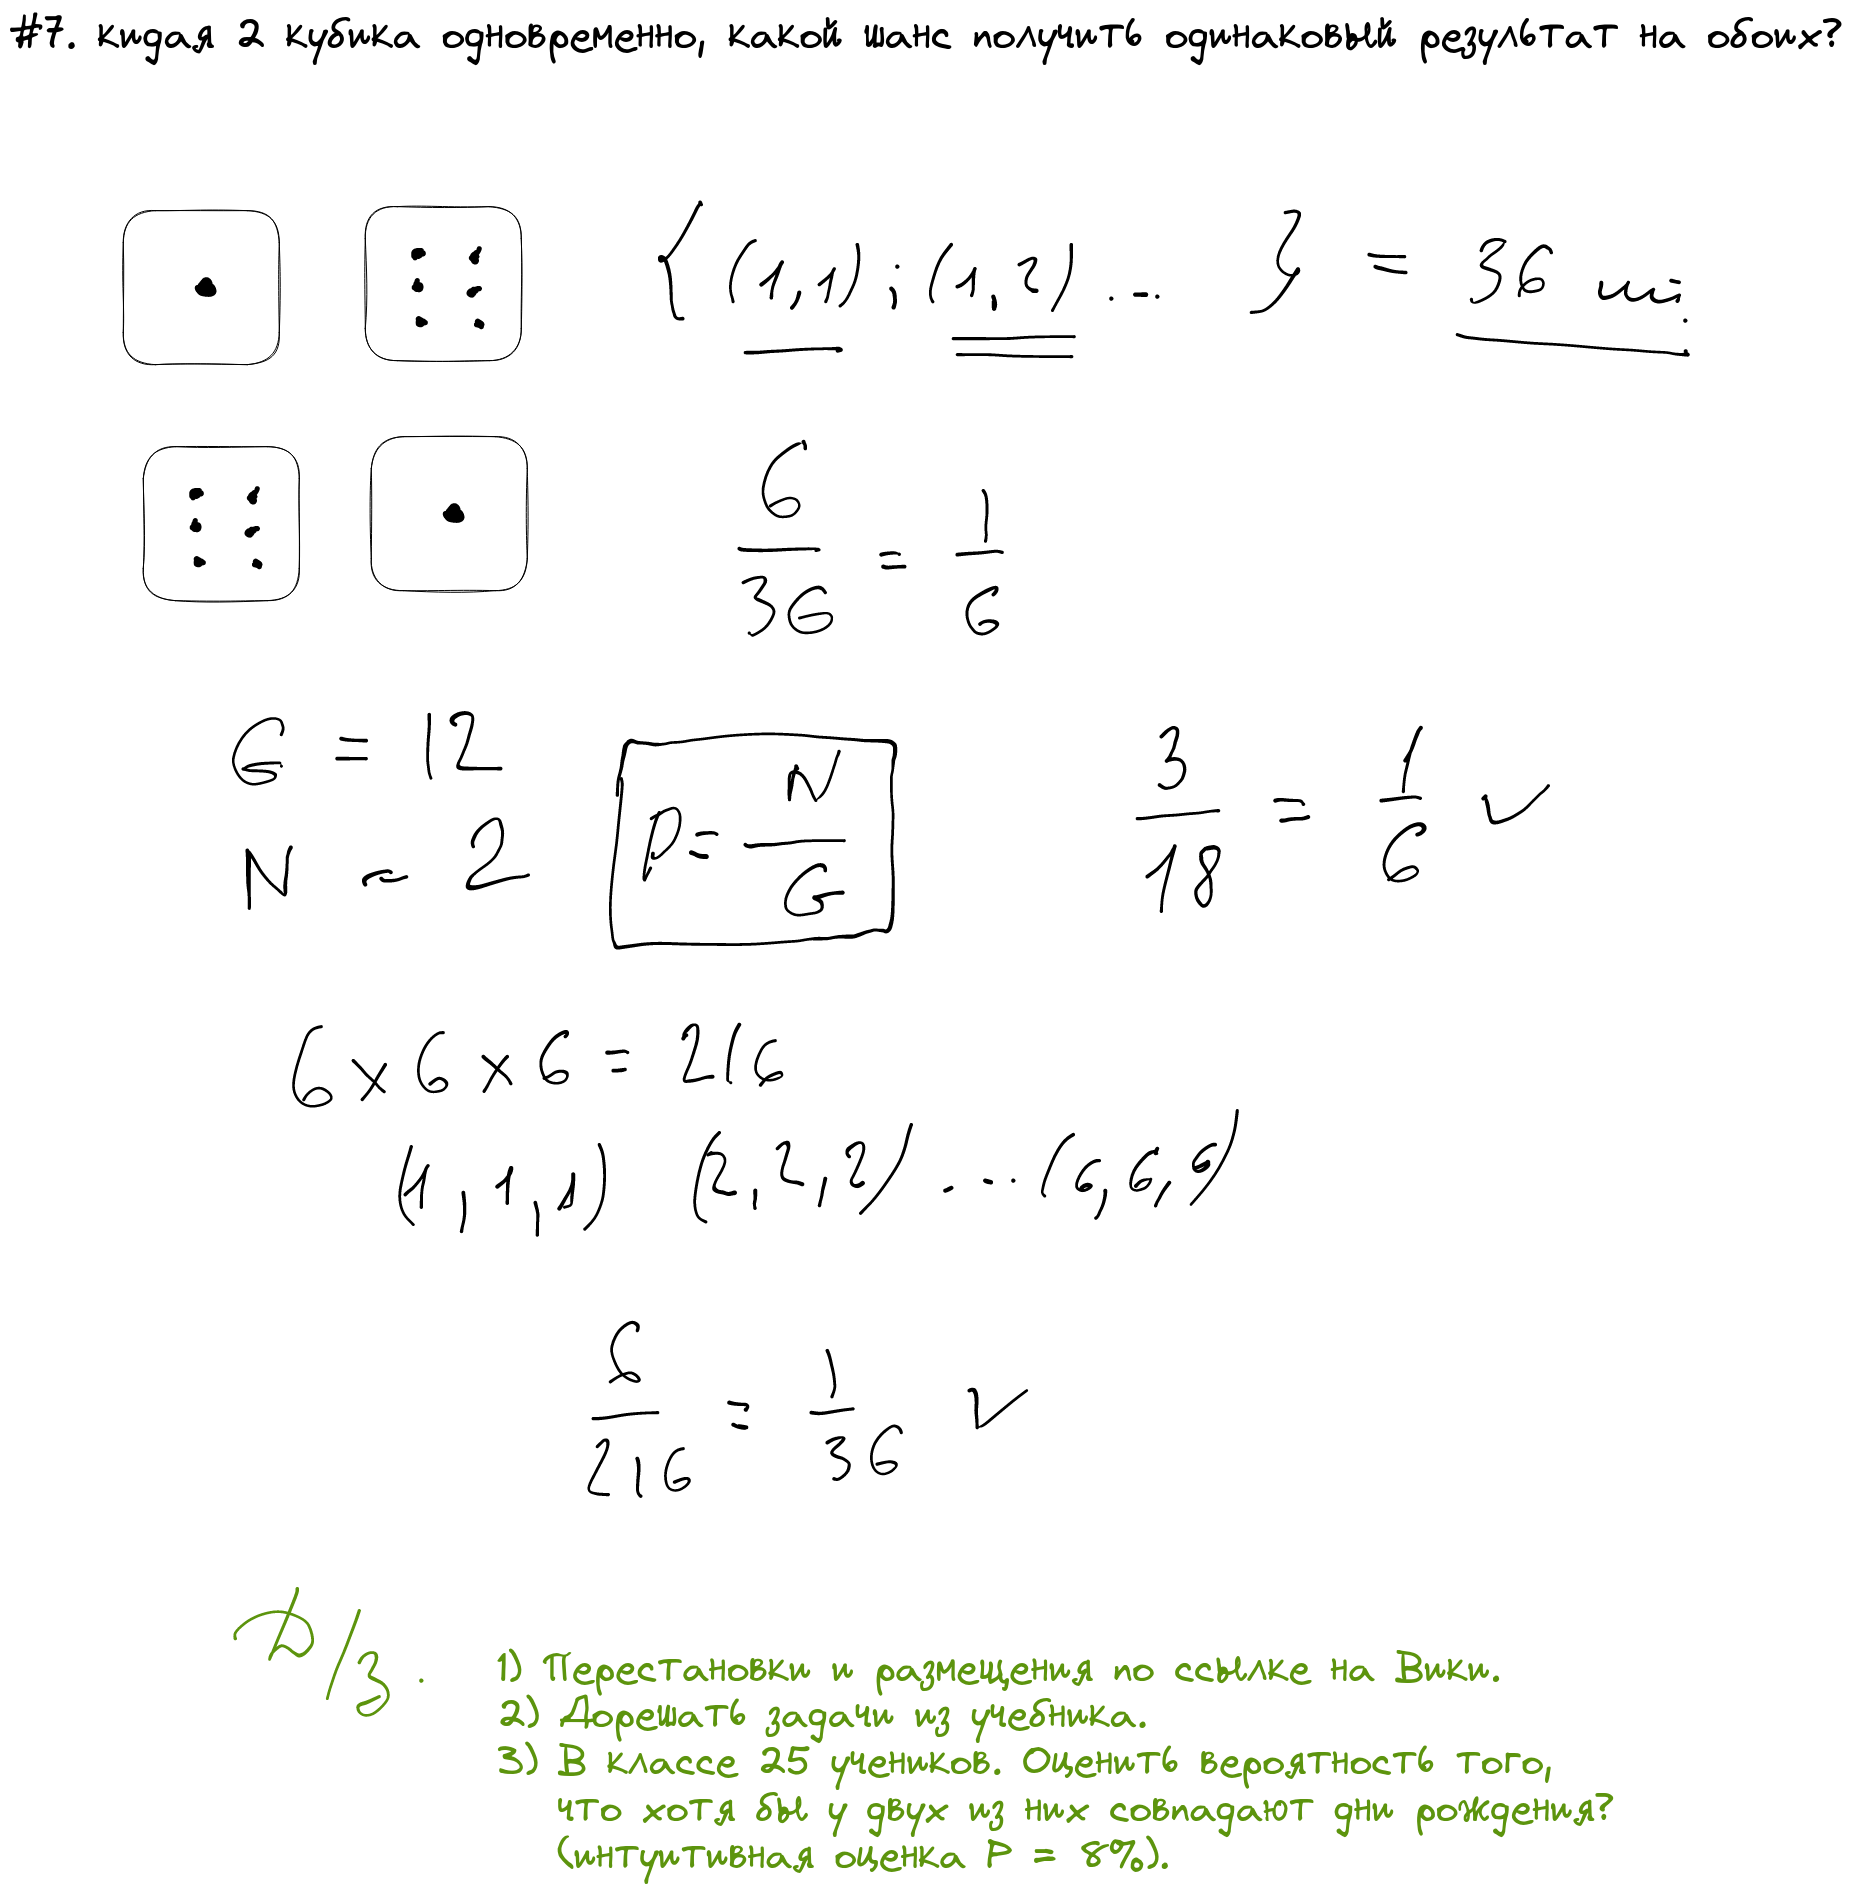 #7. кидая 2 кубика одновременно, какой шанс получить одинаковый результат на обоих?
{ (1,1) ; (1,2) ... } = 36 шт.
6/36 = 1/6
G = 12
N = 2
P = N/G
3/18 = 1/6 ✓
6 x 6 x 6 = 216
(1,1,1) (2,2,2) ... (6,6,6)
6/216 = 1/36 ✓
Д/З.
1) Перестановки и размещения по ссылке на Вики.
2) Дорешать задачи из учебника.
3) В классе 25 учеников. Оценить вероятность того,
что хотя бы у двух из них совпадают дни рождения?
(интуитивная оценка P = 8%).